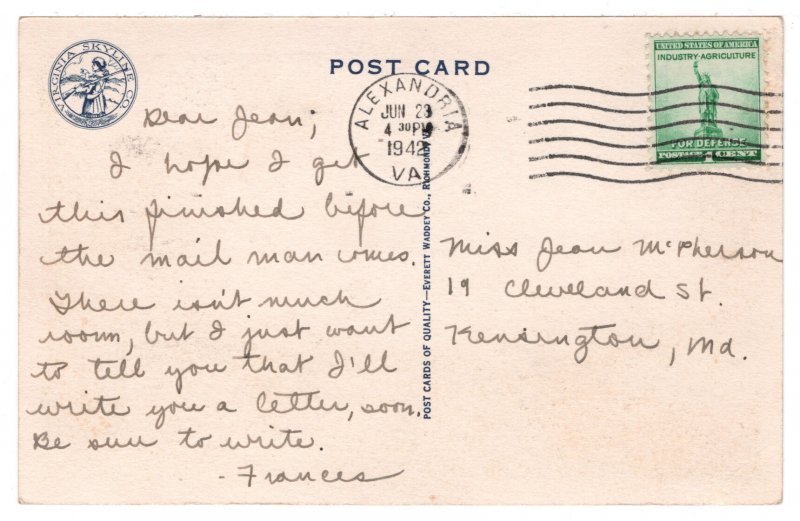 VIRGINIA SKYLINE CO.
POST CARD
ALEXANDRIA
JUN 23
4 30 PM
1942
VA.
UNITED STATES OF AMERICA
INDUSTRY-AGRICULTURE
FOR DEFENSE
POSTAGE 1 CENT
Dear Jean;
I hope I get
this finished before
the mail man comes.
There isn't much
room, but I just want
to tell you that I'll
write you a letter, soon.
Be sure to write.
- Frances
POST CARDS OF QUALITY—EVERETT WADDEY CO., RICHMOND, VA.
Miss Jean McPherson
19 Cleveland St.
Kensington, Md.